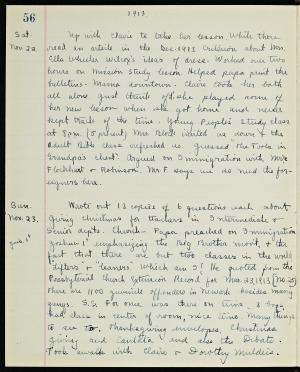 56
1913.
Sat.
Nov. 22.
Up with Claire to take her lesson. While there
read an article in the Dec. 1913 Criterion about Mrs.
Ella Wheeler Wilcox's ideas of dress. Worked over two
hours on mission study lesson. Helped papa print the
bulletins. Mama downtown. Claire took her bath
all alone just think of it! We played some of
her new lesson when she got home and never
kept track of the time. Young People's study class
at 8 p.m. (5 present) Mrs. invited us down & the
Adult Bible class refreshed us. Guessed the Tools in
Grandpa's chest. Argued on Immigration with Mrs.
Flockhart & Robinson. Mr. F. says we do need the for-
eigners here.
Sun.
Nov. 23.
Wrote out 18 copies of 6 questions each about
giving Christmas for teachers in Intermediate &
Senior depts. Church - Papa preached on Immigration
Joshua 1 emphasizing the Big Brother movt. & the
fact that there are but two classes in the world
"lifters" & "leaners" Which am I? He quoted from the
Presbyterian Church Extension Record for Nov. 23, 1913 (No. 25)
There are 1100 juvenile offenders in Newark besides many
gangs. S.S. For once was there on time. 8
had class in center of room, nice time. Many things
to see to. Thanksgiving envelopes, Christmas
giving and Cantata and also the Debate.
Took walk with Claire & Dorothy